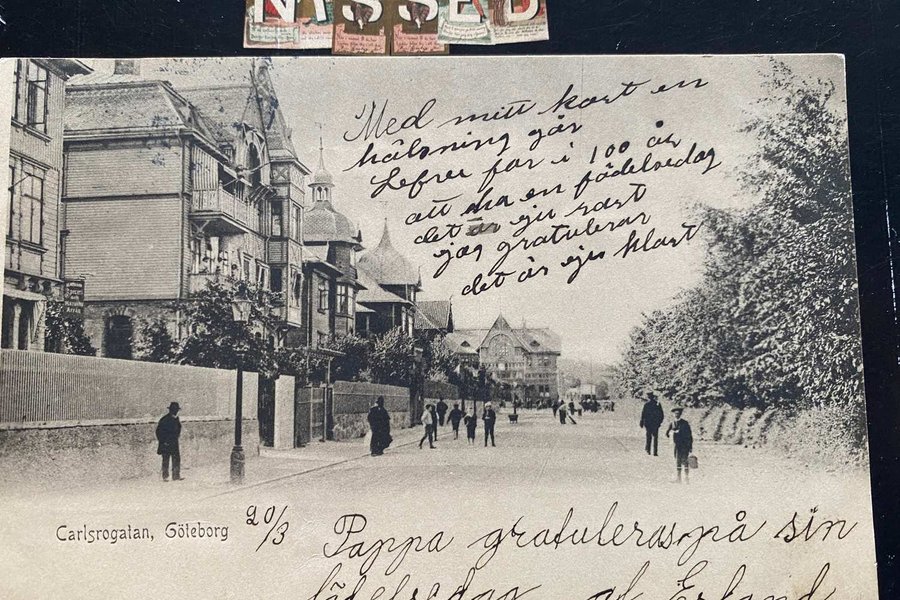 NISSED
Med mitt kort en
hälsning går
Lefve far i 100 år
att ha en födelsedag
det är eju rart
jag gratulerar
det är eju klart
Carlsrogatan, Göteborg
20/3
Pappa gratuleras på sin
födelsedag af Erland